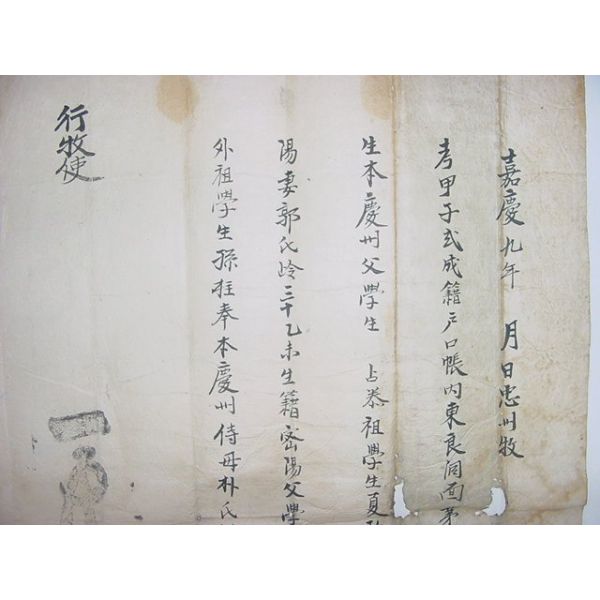 嘉慶九年 月日忠州牧
考甲子式成籍戶口帳內東良洞面第
生本慶州父學生 占恭祖學生夏
陽妻郭氏岭三十乙未生籍密陽父學
外祖學生孫枉奉本慶州侍母朴氏
行牧使